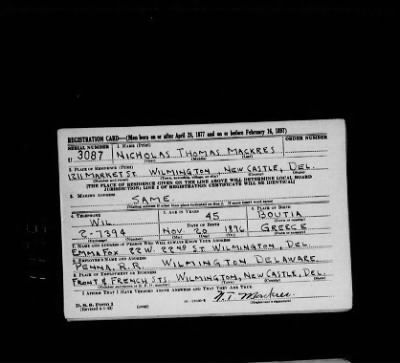 REGISTRATION CARD—(Men born on or after April 28, 1877 and on or before February 16, 1897)
SERIAL NUMBER 1. NAME (Print) ORDER NUMBER
U 3087 NICHOLAS THOMAS MACKRES
(First) (Middle) (Last)
2. PLACE OF RESIDENCE (Print)
1211 MARKET ST. WILMINGTON, NEW CASTLE, DEL.
(Number and street) (Town, township, village, or city) (County) (State)
[THE PLACE OF RESIDENCE GIVEN ON THE LINE ABOVE WILL DETERMINE LOCAL BOARD
JURISDICTION; LINE 2 OF REGISTRATION CERTIFICATE WILL BE IDENTICAL]
3. MAILING ADDRESS
SAME
4. TELEPHONE 5. AGE IN YEARS 6. PLACE OF BIRTH
WIL 45 BOUTIA
DATE OF BIRTH
2-7394 NOV. 20 1896 GREECE
7. NAME AND ADDRESS OF PERSON WHO WILL ALWAYS KNOW YOUR ADDRESS
EMMA FOX 22 W. 22ND ST. WILMINGTON, DEL.
8. EMPLOYER'S NAME AND ADDRESS
PENNA. R.R. WILMINGTON DELAWARE
9. PLACE OF EMPLOYMENT OR BUSINESS
FRONT & FRENCH STS. WILMINGTON, NEW CASTLE, DEL.
I AFFIRM THAT I HAVE VERIFIED ABOVE ANSWERS AND THAT THEY ARE TRUE.
D. S. S. Form 1 N.T. Mackres